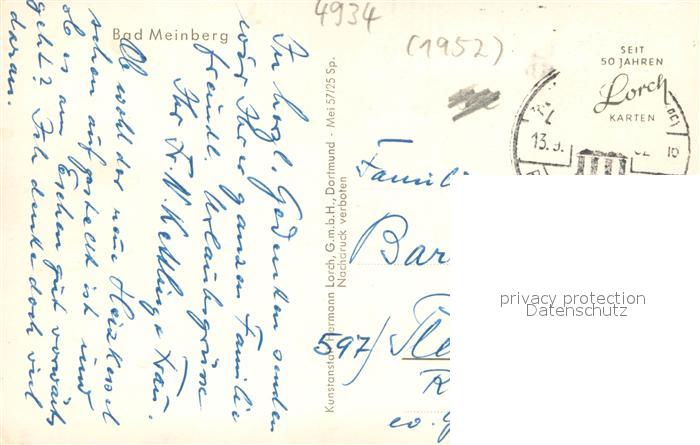 4934
(1952)
Bad Meinberg
In herzl. Gedenken senden
wir Ihrer ganzen Familie
freundl. Urlaubsgrüsse
Ihr Fr. W. Kettling u. Frau.
Ob wohl der neue Heizkessel
schon aufgestellt ist und
ob es am Eschen gut vorwärts
geht? Ich denke doch viel
daran.
Kunstanstalt Hermann Lorch, G.m.b.H., Dortmund - Mei 57/25 Sp.
Nachdruck verboten
SEIT
50 JAHREN
Lorch
KARTEN
13.9.
Famili
Bar
597/
privacy protection
Datenschutz